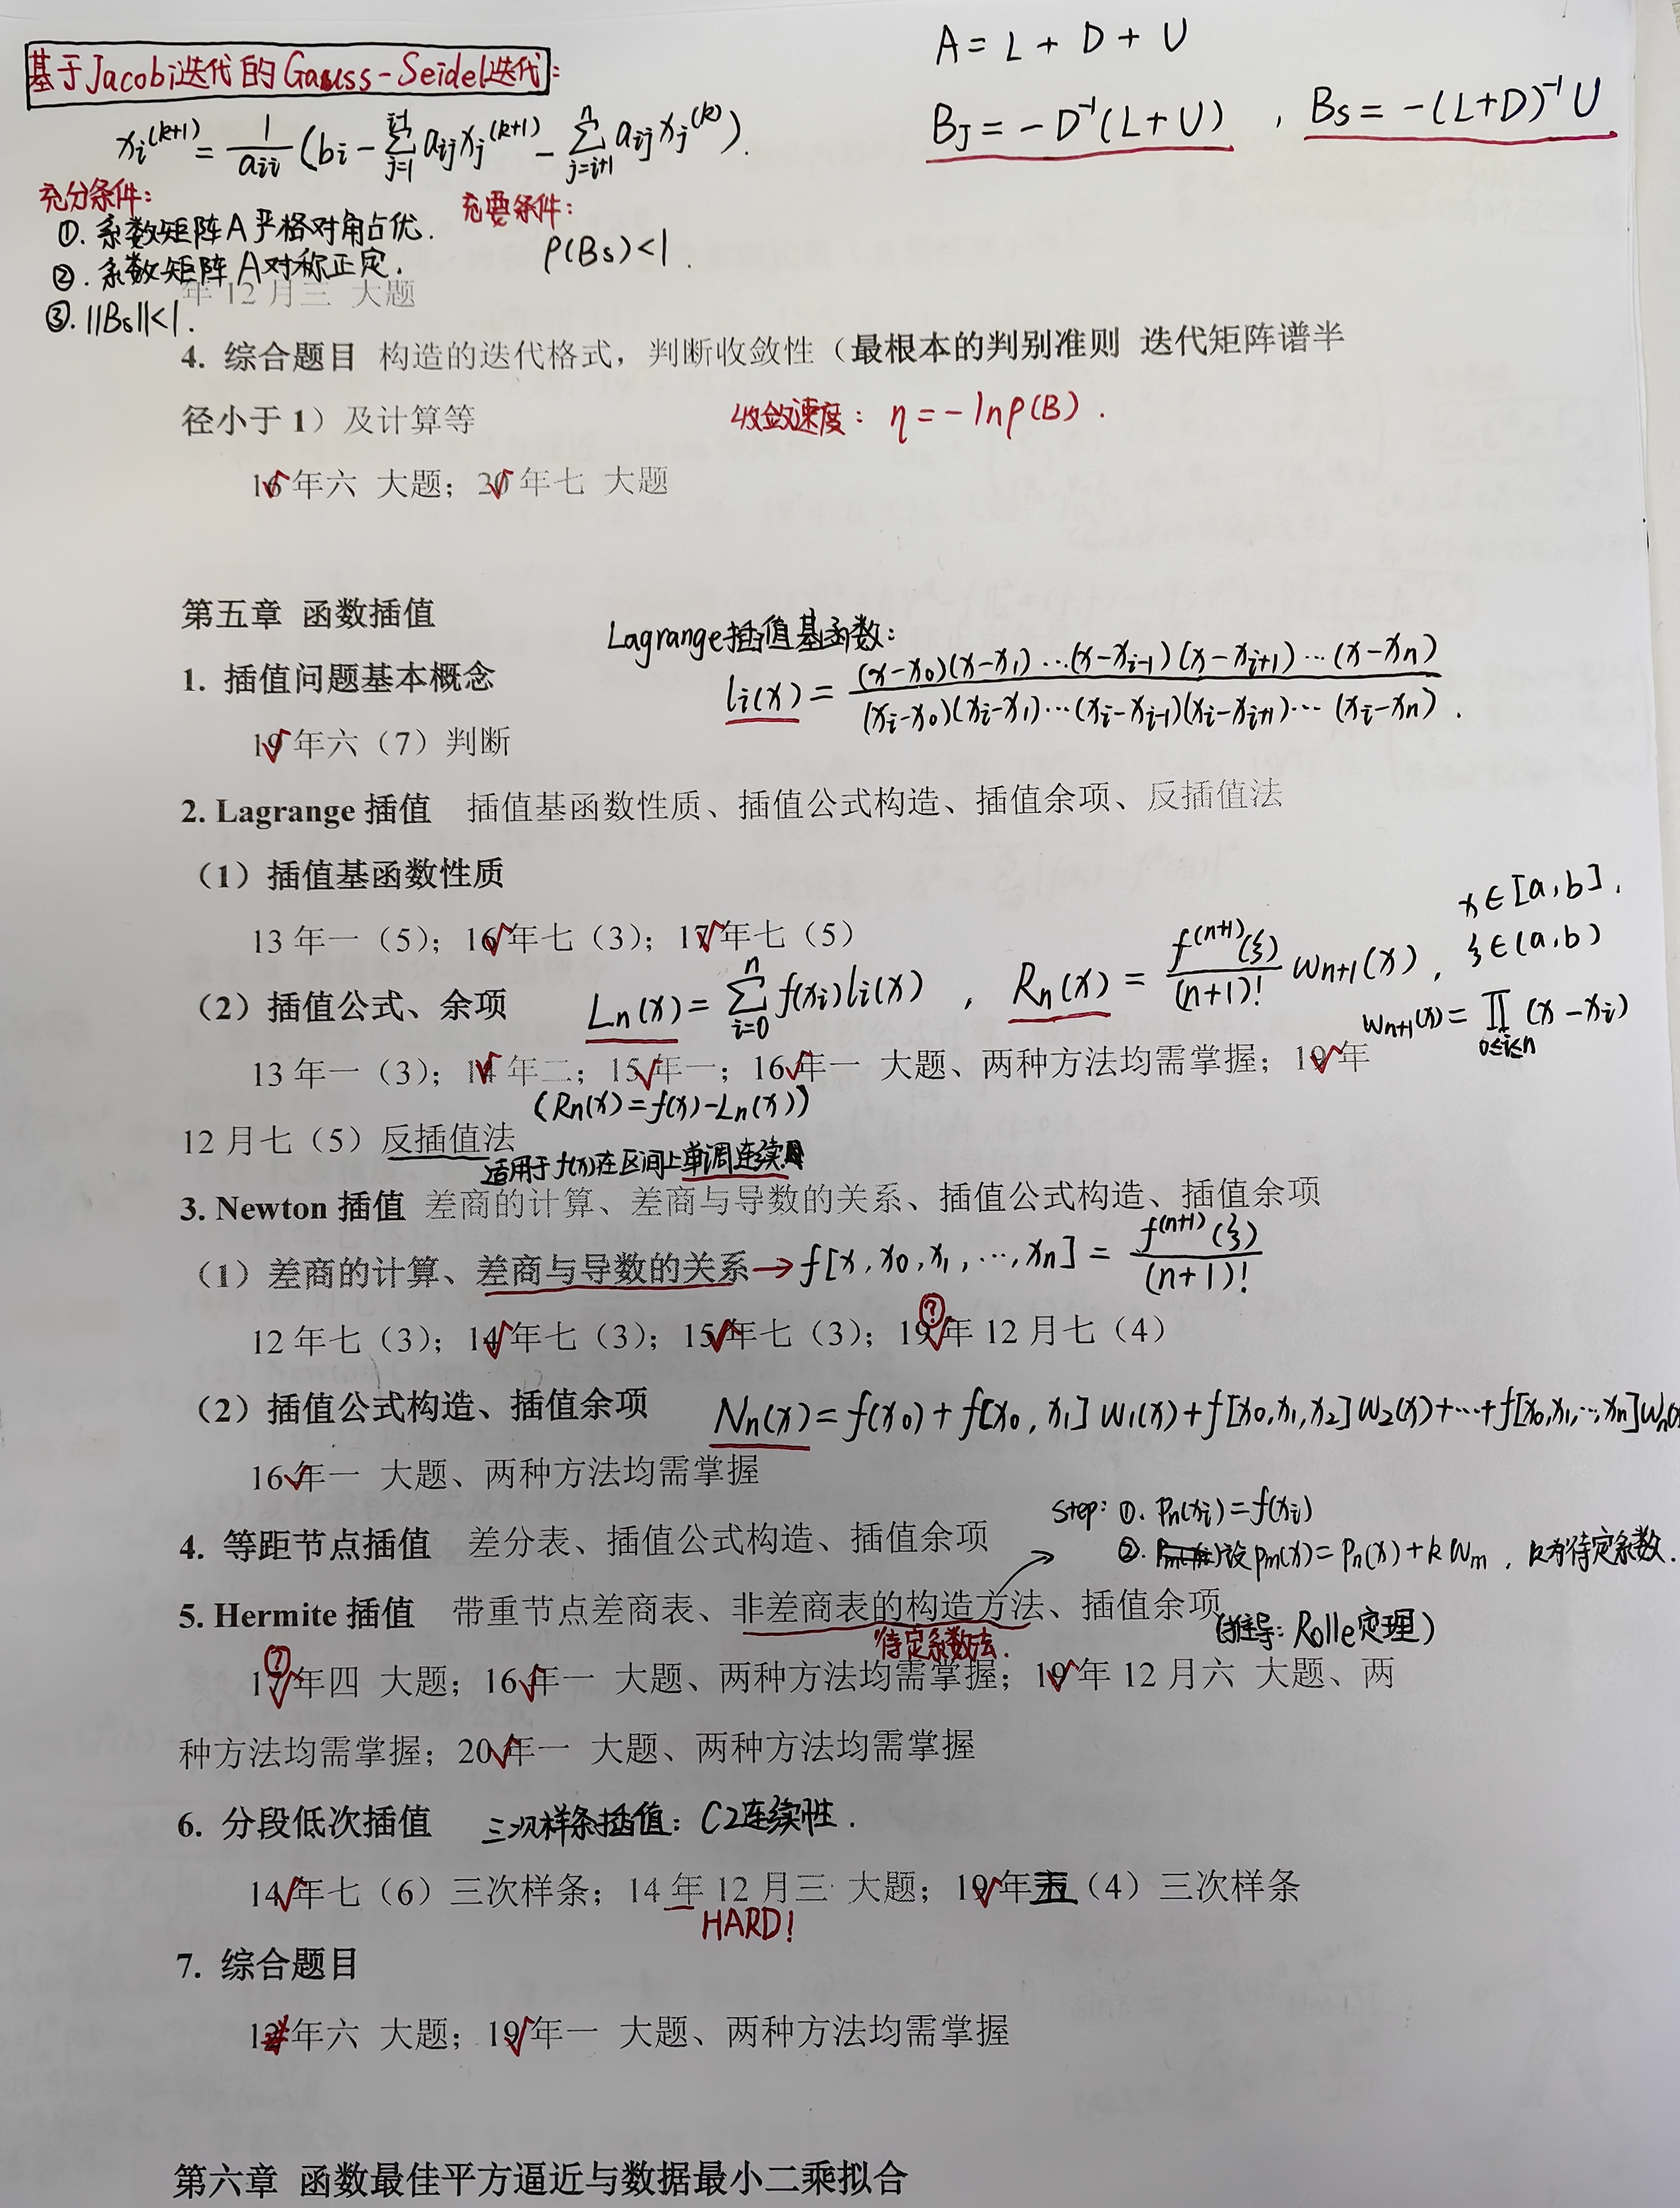 基于Jacobi迭代的Gauss-Seidel迭代:
A = L + D + U
B_J = -D⁻¹(L+U) , B_S = -(L+D)⁻¹U
x_i^(k+1) = 1/a_ii (b_i - Σ_{j=1}^{i-1} a_ij x_j^(k+1) - Σ_{j=i+1}^{n} a_ij x_j^(k)).
充分条件: 充要条件:
①. 系数矩阵A严格对角占优.
②. 系数矩阵A对称正定. ρ(B_S)<1.
年12月三 大题
③. ||B_S||<1.
4. 综合题目 构造的迭代格式，判断收敛性（最根本的判别准则 迭代矩阵谱半
径小于1）及计算等 收敛速度: η = -lnρ(B).
16年六 大题；20年七 大题
第五章 函数插值
Lagrange插值基函数:
1. 插值问题基本概念
l_i(x) = (x-x_0)(x-x_1)…(x-x_{i-1})(x-x_{i+1})…(x-x_n) / (x_i-x_0)(x_i-x_1)…(x_i-x_{i-1})(x_i-x_{i+1})…(x_i-x_n).
19年六（7）判断
2. Lagrange 插值 插值基函数性质、插值公式构造、插值余项、反插值法
（1）插值基函数性质
13年一（5）；16年七（3）；17年七（5）
（2）插值公式、余项 L_n(x) = Σ_{i=0}^{n} f(x_i)l_i(x) , R_n(x) = f^(n+1)(ξ)/(n+1)! w_{n+1}(x), x∈[a,b], ξ∈(a,b)
w_{n+1}(x) = ∏_{0≤i≤n} (x-x_i)
13年一（3）；14年二；15年一；16年一 大题、两种方法均需掌握；19年
(R_n(x)=f(x)-L_n(x))
12月七（5）反插值法
适用于f(x)在区间上单调连续
3. Newton 插值 差商的计算、差商与导数的关系、插值公式构造、插值余项
（1）差商的计算、差商与导数的关系→f[x, x_0, x_1, …, x_n] = f^(n+1)(ξ)/(n+1)!
?
12年七（3）；14年七（3）；15年七（3）；19年12月七（4）
（2）插值公式构造、插值余项 N_n(x) = f(x_0) + f[x_0, x_1]w_1(x) + f[x_0,x_1,x_2]w_2(x)+…+f[x_0,x_1,…,x_n]w_n(x
16年一 大题、两种方法均需掌握
step: ①. p_n(x_i) = f(x_i)
4. 等距节点插值 差分表、插值公式构造、插值余项
②. 设p_m(x) = p_n(x) + k w_m, k为待定系数.
5. Hermite 插值 带重节点差商表、非差商表的构造方法、插值余项
待定系数法. (推导: Rolle定理)
?
17年四 大题；16年一 大题、两种方法均需掌握；19年12月六 大题、两
种方法均需掌握；20年一 大题、两种方法均需掌握
6. 分段低次插值 三次样条插值: C2连续性.
14年七（6）三次样条；14年12月三 大题；19年五（4）三次样条
HARD!
7. 综合题目
12年六 大题；19年一 大题、两种方法均需掌握
第六章 函数最佳平方逼近与数据最小二乘拟合